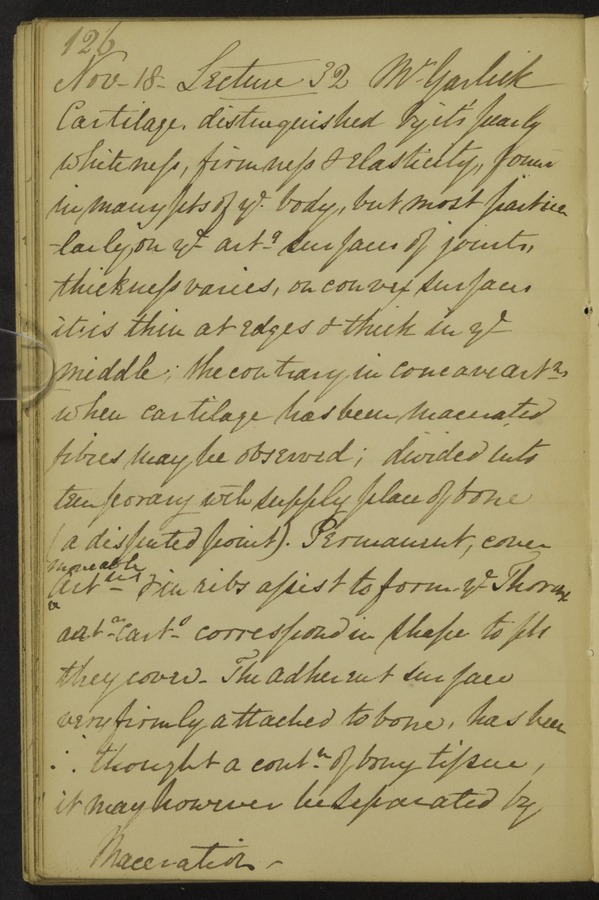 126
Nov - 18 - Lecture 32 Mr Garlick
Cartilage. distinguished by it's pearly
whiteness, firmness & elasticity, found
in many pts of ye body, but most particu
-larly, on ye artg surfaces of joints,
thickness varies, on convex surfaces
it is thin at edges & thick in ye
middle; the contrary in concave artns
when cartilage has been macerated
fibres may be observed; divided into
temporary wch supply place of bone
(a disputed point). Permanent, cover
moveable
artns & in ribs assist to form ye Thorax
artr Carts correspond in shape to pts
they cover - The adherent surface
very firmly attached to bone, has been
∴ thought a contn of bony tissue,
it may however be separated by
Maceration -